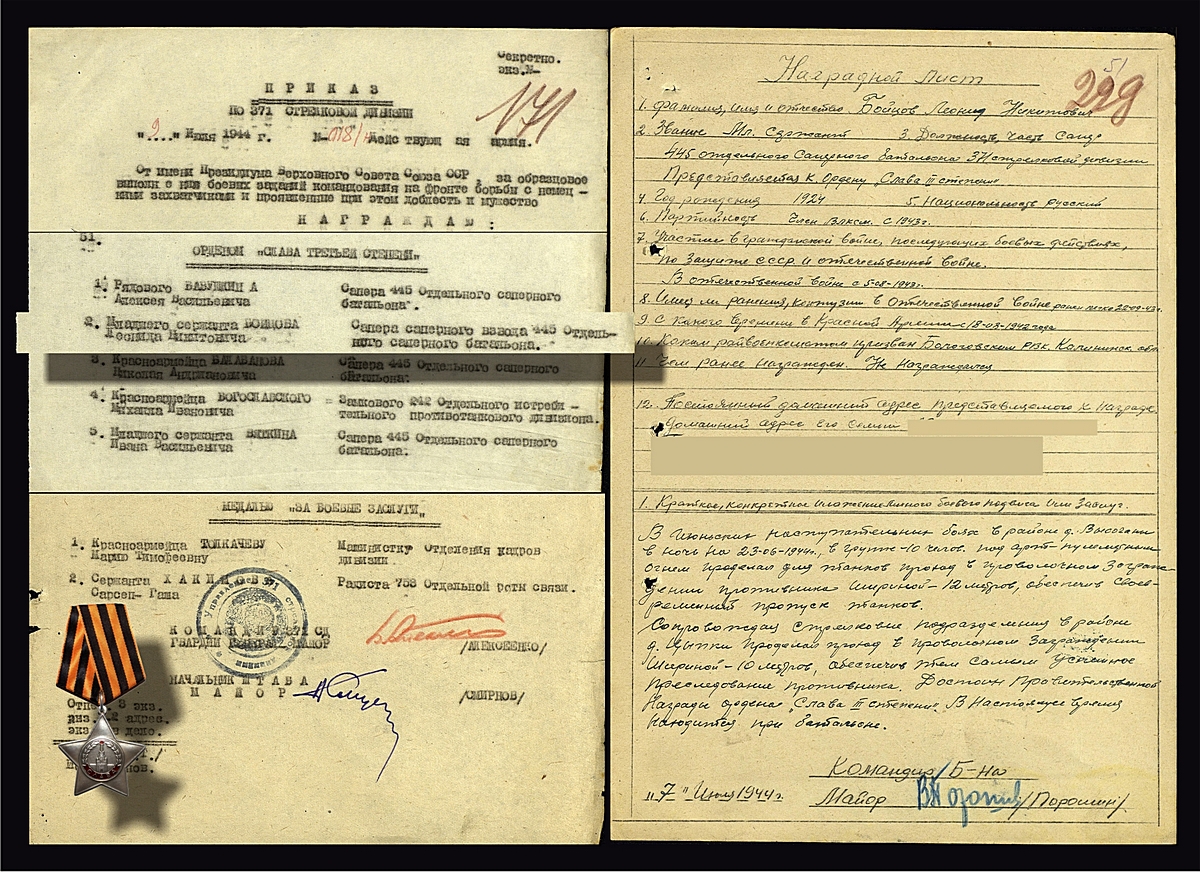 Секретно.
экз.№
П Р И К А З
ПО 371 СТРЕЛКОВОЙ ДИВИЗИИ
171
"9" Июля 1944 г. № 018/н Действующая армия.
От имени Президиума Верховного Совета Союза ССР, за образцовое
выполнение боевых заданий командования на фронте борьбы с немец-
кими захватчиками и проявленные при этом доблесть и мужество
Н А Г Р А Ж Д А Ю :
51.
ОРДЕНОМ "СЛАВА ТРЕТЬЕЙ СТЕПЕНИ"
1. Рядового БАБУШКИНА Сапера 445 Отдельного саперного
Алексея Васильевича батальона.
2. Младшего сержанта БОЙЦОВА Сапера саперного взвода 445 Отдель-
Леонида Никитовича ного саперного батальона.
3. Красноармейца БАЛАБАНОВА Сапера 445 Отдельного саперного
Николая Андриановича батальона.
4. Красноармейца БОГОСЛАВСКОГО - Замкового 242 Отдельного истреби-
Михаила Ивановича тельного противотанкового дивизиона.
5. Младшего сержанта ВЯТКИНА Сапера 445 Отдельного саперного
Ивана Васильевича батальона.
МЕДАЛЬЮ "ЗА БОЕВЫЕ ЗАСЛУГИ"
1. Красноармейца ТОЛКАЧЕВУ Машинистку Отделения кадров
Марию Тимофеевну дивизии
2. Сержанта Радиста 758 Отдельной роты связи.
Сарсен-Гаша
КОМАНДИР 371 СД
ГВАРДИИ ГЕНЕРАЛ-МАЙОР /АЛЕКСЕЕНКО/
НАЧАЛЬНИК ШТАБА
М А Й О Р /СМИРНОВ/
3 экз.
адрес.
дело.
51
229
Наградной лист
1. Фамилия, имя и отчество Бойцов Леонид Никитович
2. Звание Мл. Сержант 3. Должность, часть Сапер
445 отдельного Саперного батальона 371 стрелковой дивизии
Представляется к Ордену "Слава III степени"
4. Год рождения 1924 5. Национальность русский
6. Партийность Член ВЛКСМ с 1943г.
7. Участие в гражданской войне, последующих боевых действиях,
по защите СССР и отечественной войне.
В отечественной войне с 5-08-1943г.
8. Имеет ли ранения, контузии в Отечественной войне
9. С какого времени в Красной Армии с 18-08-1942 года
10. Каким райвоенкоматом призван Бологовским РВК. Калининск. обл.
11. Чем ранее награжден. Не награждался
12. Постоянный домашний адрес представляемого к награде
и домашний адрес его семьи
1. Краткое, конкретное изложение личного боевого подвига или заслуг.
В Июньских наступательных боях в районе д. Высочаны
в ночь на 23-06-1944г., в группе 10 челов. под арт-пулеметным
огнем проделал для танков проход в проволочном загражде-
дении противника шириной - 12 метров, обеспечив свое-
временный пропуск танков.
Сопровождая стрелковые подразделения в районе
д. проделал проход в проволочном заграждении
шириной - 10 метров, обеспечив тем самым успешное
преследование противника. Достоин Правительственной
награды ордена "Слава III степени". В настоящее время
находится при батальоне.
Командир Б-на
"7" Июля 1944г. Майор /Порошин/